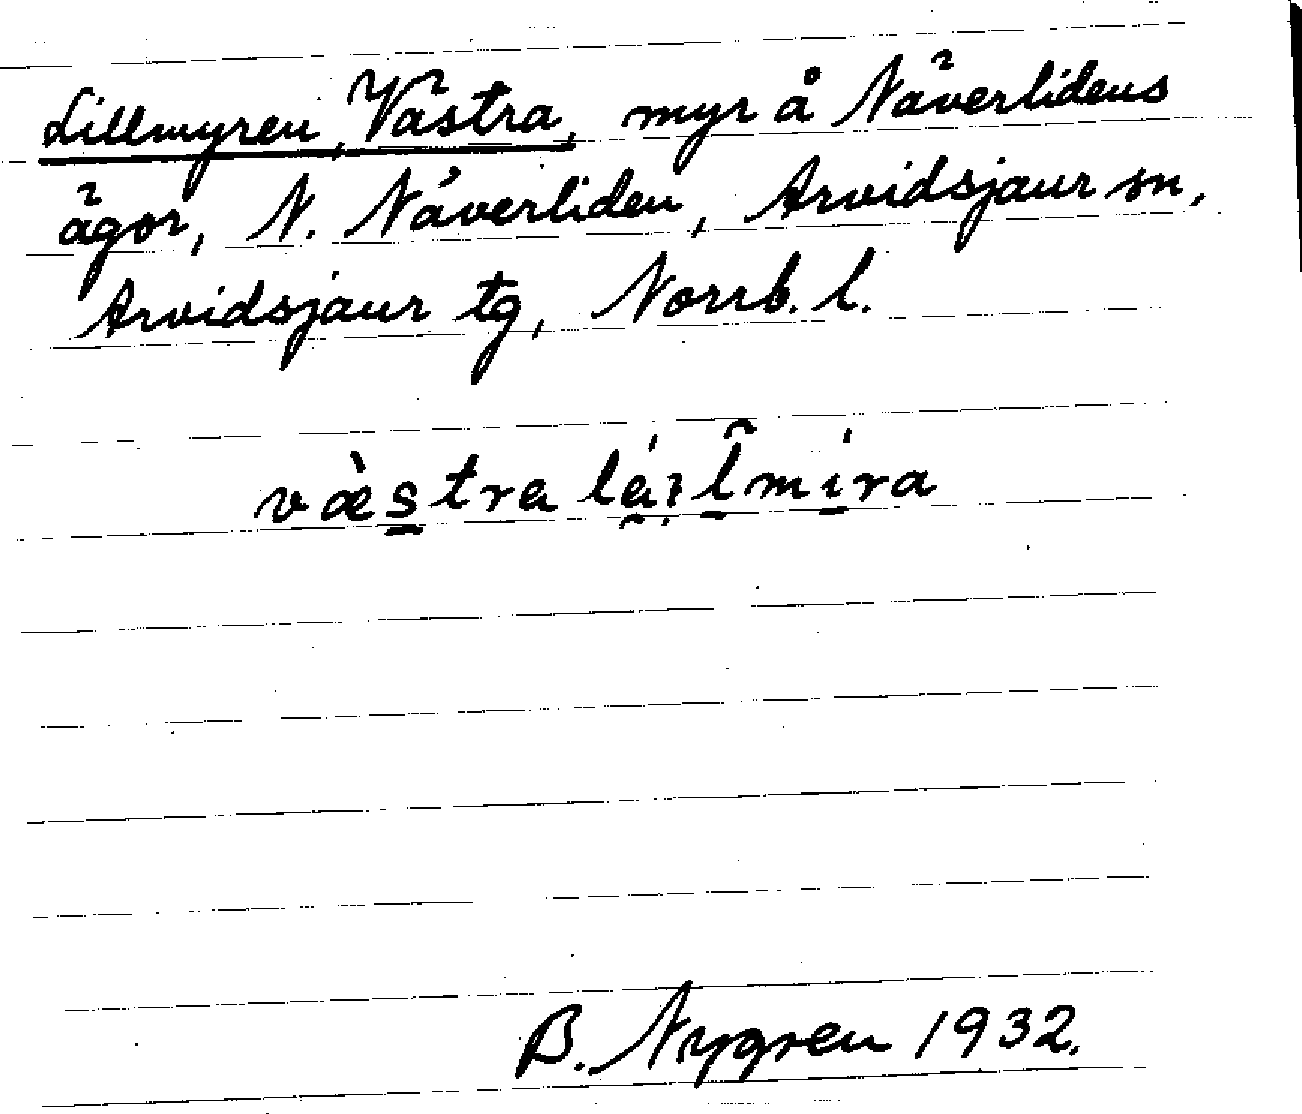 Lillmyren, Västra, myr å Näverlidens
ägor, N. Näverliden, Arvidsjaur sn,
Arvidsjaur tg, Norrb. l.
væ̀s̱tra
B. Nygren 1932.